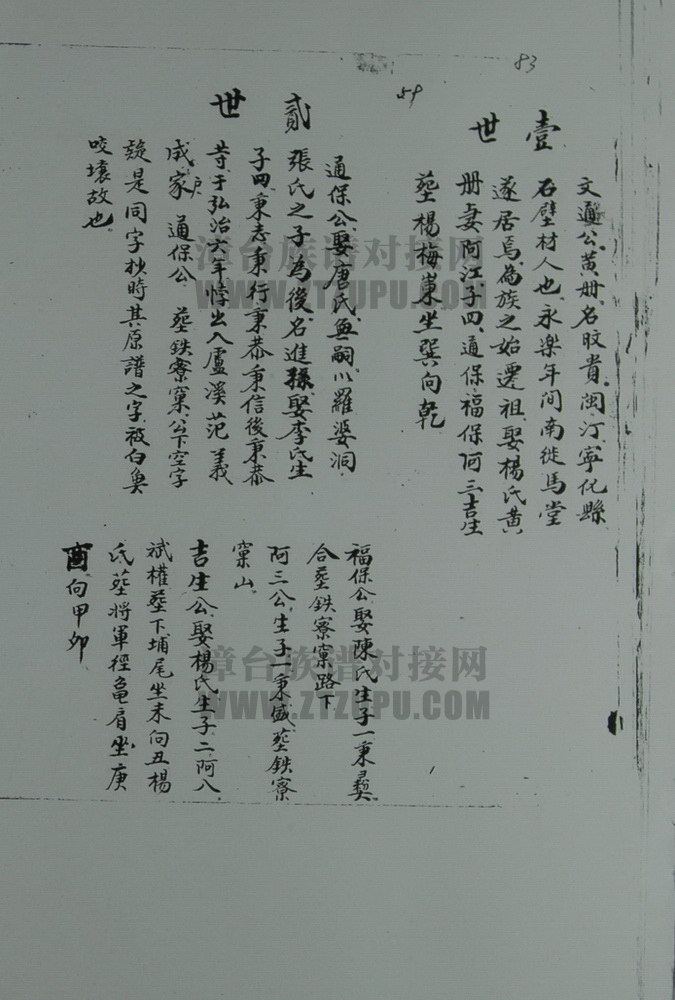 83
59
壹世
文通公,黄册名旼貴,閩汀寧化縣
石壁材人也,永樂年間南徙馬堂
遂居焉,為族之始遷祖,娶楊氏黄
册妻阿江子四,通保福保阿三吉生
塟楊梅巢坐巽向乾
貳世
通保公,娶唐氏,無嗣,以羅婆洞
張氏之子為後,名進孫,娶李氏生
子四,秉志秉行,秉恭秉信後秉恭
等于弘治六年悖出入盧溪范義
成家戶 通保公 塟鉄寮窠,公下空字
疑是同字抄時其原譜之字,被白魚
咬壞故也
福保公,娶陳氏生子一秉彛
合塟鉄寮窠路下
阿三公,生子一秉盛,塟鉄寮
窠山
吉生公,娶楊氏生子二,阿八
斌權塟下埔尾坐未向丑楊
氏塟將軍徑龟肩坐庚
酉向甲卯
漳台族谱对接网
WWW.ZTZUPU.COM
漳台族谱对接网
WWW.ZTZUPU.COM